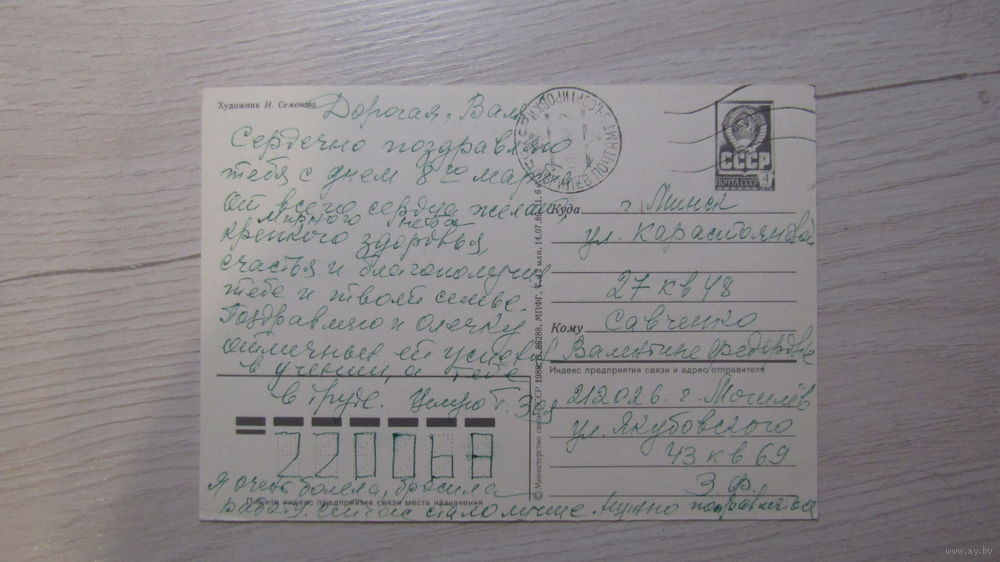 Художник И. Семенова
Дорогая, Валя
Сердечно поздравляю
тебя с днем 8го марта
От всего сердца желаю,
Мирного неба
крепкого здоровья,
счастья и благополучия
тебе и твоей семье.
Поздравляю и Олечку
отличных ей успехов
в учении, а тебе
в труде. Целую т. Зоя
220068
Я очень болела, бросила
Пишите индекс предприятия связи места назначения
работу. Сейчас стало лучше. Нужно поправляться
ПОЧТАМТ
СССР
ПОЧТА СССР 4
Куда г. Минск
ул. Карастояновой
27 кв 48
Кому Савченко
Валентине Федоровне
Индекс предприятия связи и адрес отправителя
212026 г. Могилёв
ул. Якубовского
43 кв 69
З. Ф.
© Министерство связи СССР 1988
14.07.88
www.ay.by